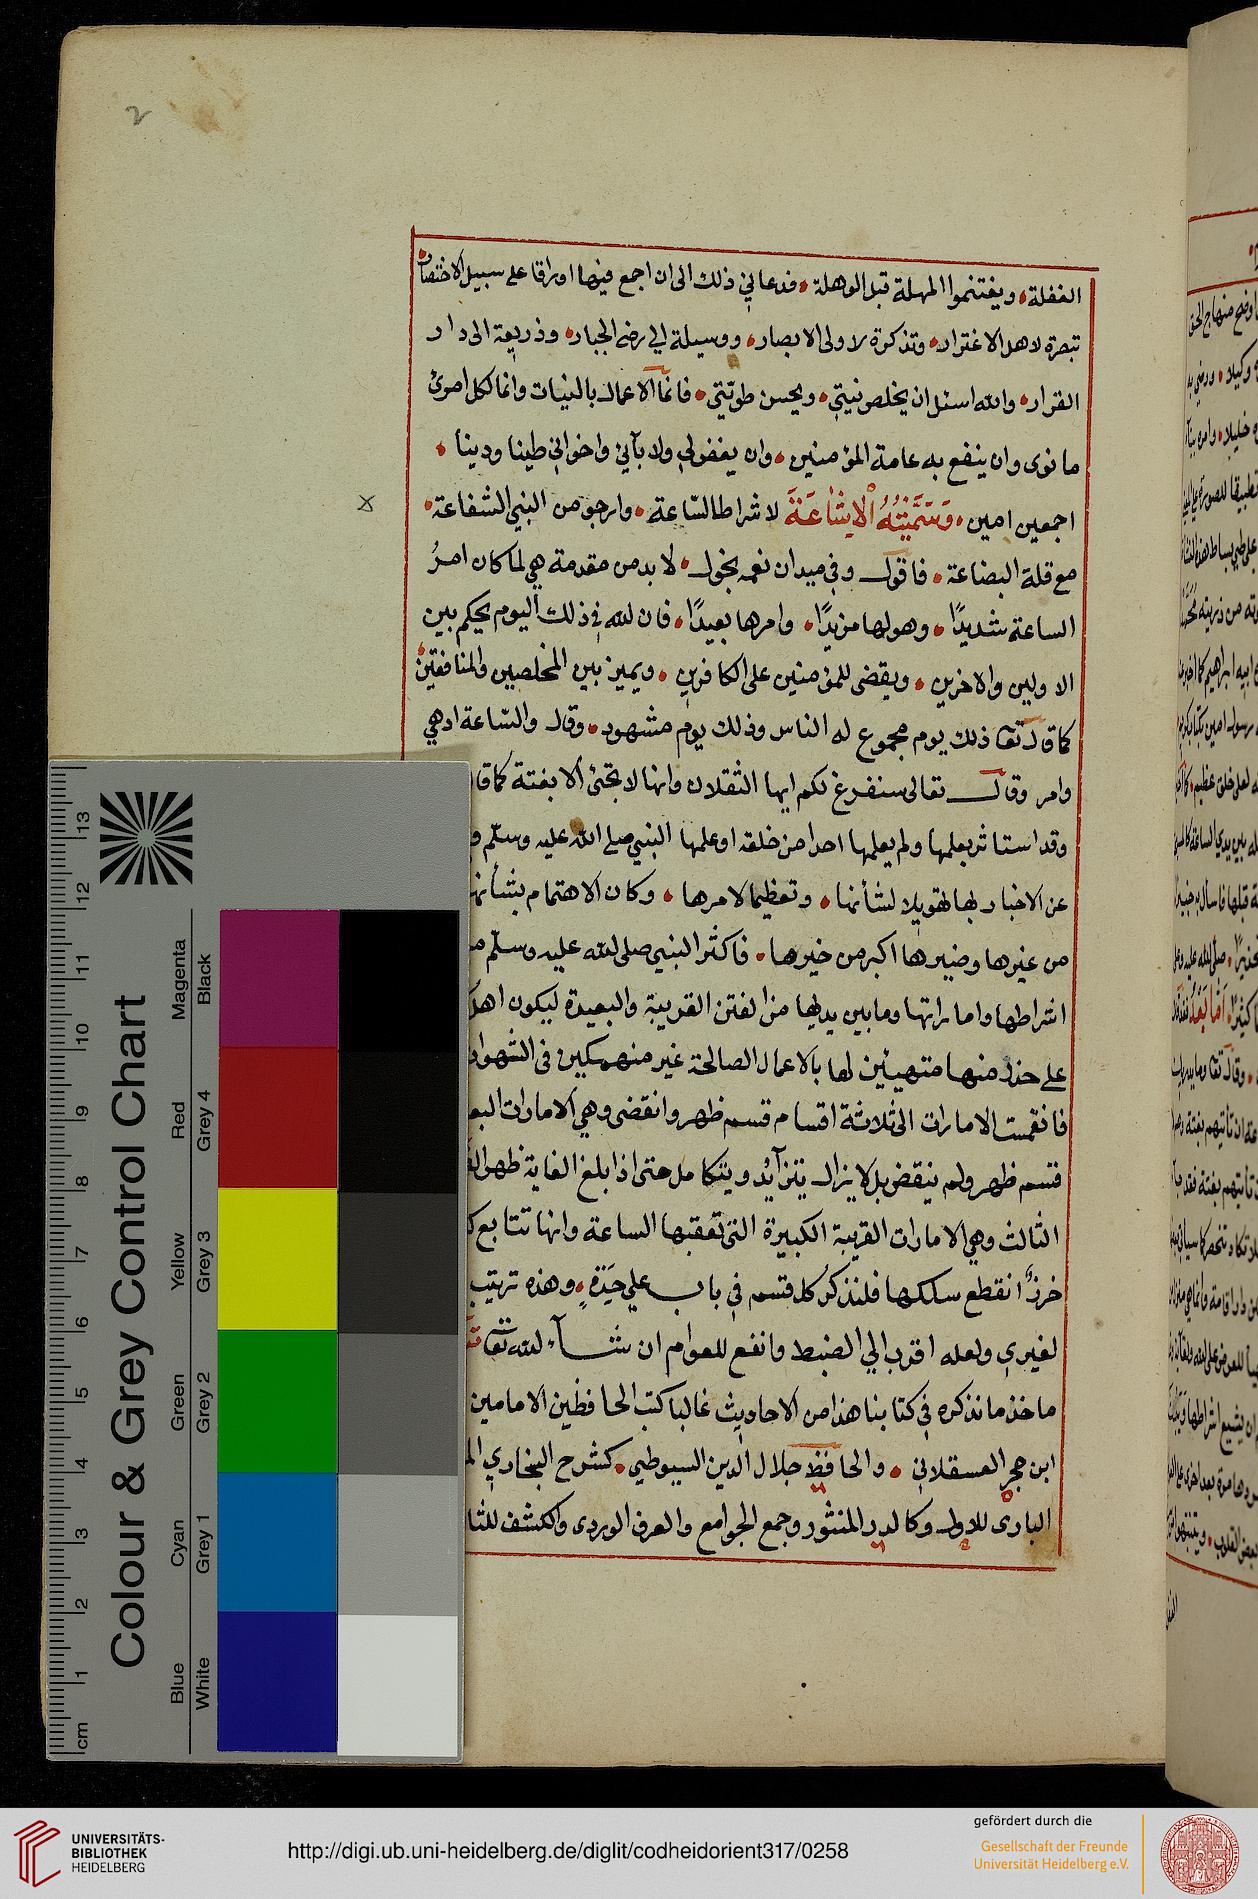 2
الغفلة، ويغتنموا المهلة قبل الوهلة، فدعاني ذلك الى ان اجمع فيها اوراقا على سبيل الاختصار
تبصرة لاهل الاغترار، وتذكرة لاولى الابصار، ووسيلة الي رضى الجبار، وذريعة الى دار
القرار، والله اسئل ان يخلص نيتي، ويحسن طويّتي، فانما الاعمال بالنيات وانما لكل امرئ
ما نوى وان ينفع به عامة المؤمنين، وان يغفر لي ولابآئي واخواني طينا ودينا،
اجمعين امين، وَسَمَّيْتُهُ الْاِشَاعَةَ لاشراط السّاعة، وارجو من النبي الشفاعة،
مع قلة البضاعة، فاقول وفي ميدان نعمه نجول، لا بد من مقدمة هي لما كان امرُ
الساعة شديدًا، وهولها مزيدًا، وامرها بعيدًا، فان لله في ذلك اليوم يحكم بين
الاولين والاخرين، ويقضى للمؤمنين على الكافرين، ويميز بين المخلصين والمنافقين
كما قال تعا ذلك يوم مجموع له الناس وذلك يوم مشهود، وقال والسّاعة ادهي
وامر وقال تعالى سنفرغ لكم ايها الثقلان وانها لا تجئ الا بغتة كما قا
وقد استاثر بعلمها ولم يعلمها احدا من خلقه او علمها النبي صلى الله عليه وسلّم و
عن الاخبار بها تهويلا لشأنها، وتعظيما لامرها، وكان الاهتمام بشأنها
من غيرها وضيرها اكبر من خيرها، فاكثر النبي صلى لله عليه وسلّم من
اشراطها واماراتها وما بين يديها من الفتن القريبة والبعيدة ليكون اهل
على حذر منها متهيئين لها بالاعمال الصالحة غير منهمكين في الشهوات
فانقمست الامارات الى ثلاثة اقسام قسم ظهر وانقضى وهي الامارات البع
قسم ظهر ولم ينقض بل لا يزال يتزآيد ويتكامل حتى اذا بلغ الغاية ظهر الق
الثالث وهي الامارات القريبة الكبيرة التي تعقبها الساعة وانها تتابع ك
خرزٍ انقطع سلكها فلنذكر كل قسم في باب على حَدَةٍ، وهذه ترتيب
لغيري ولعله اقرب الي الضبط وانفع للعوام ان شآء لله تعا
ماخذ ما نذكره في كتابنا هذا من الاحاديث غالبا كتب الحافظين الامامين
ابن حجر العسقلاني، والحافظ جلال الدين السيوطي، كشرح البخاري
البارى للاول وكالدرر المنثور وجمع الجوامع والعرف الوردى والكشف للثا
cm 1 2 3 4 5 6 7 8 9 10 11 12 13
Colour & Grey Control Chart
Blue Cyan Green Yellow Red Magenta
White Grey 1 Grey 2 Grey 3 Grey 4 Black
UNIVERSITÄTS-
BIBLIOTHEK
HEIDELBERG
http://digi.ub.uni-heidelberg.de/diglit/codheidorient317/0258
gefördert durch die
Gesellschaft der Freunde
Universität Heidelberg e.V.